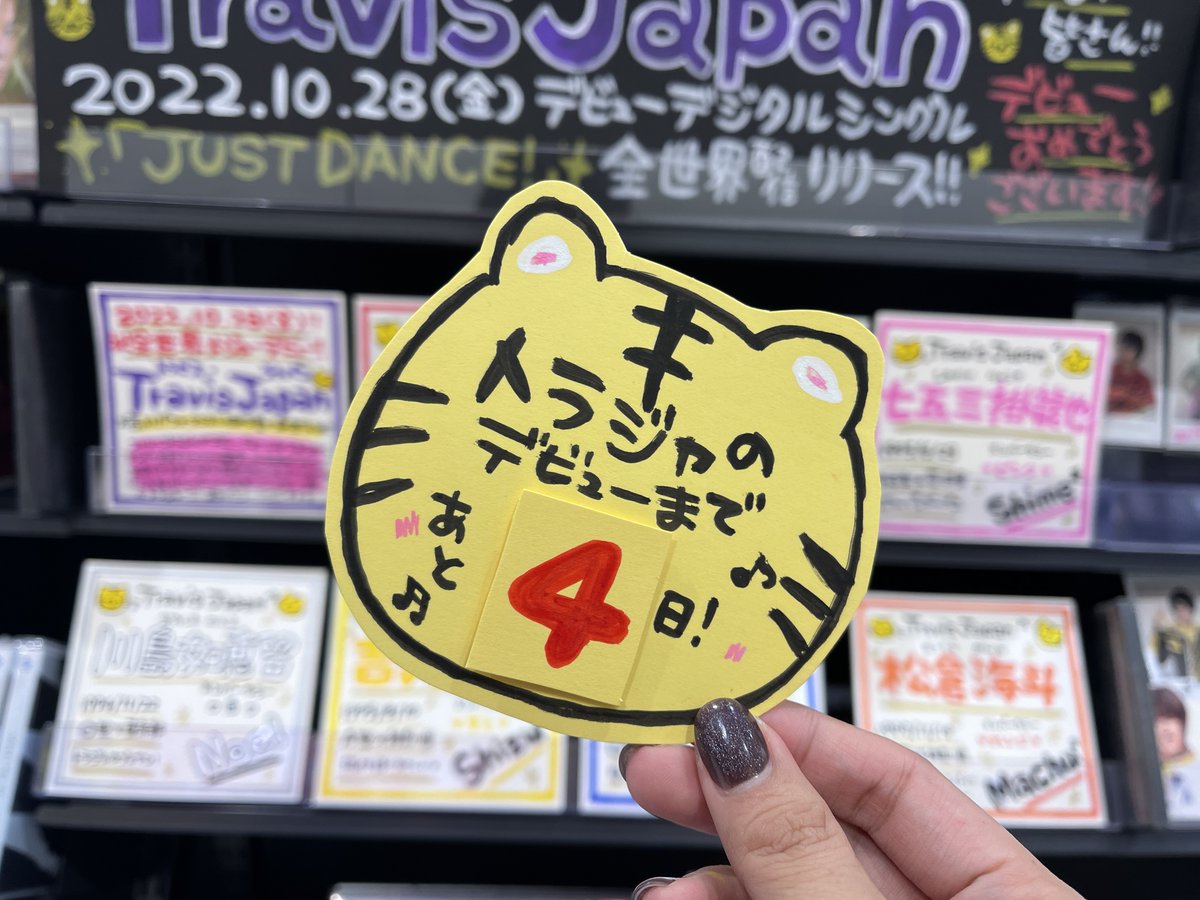 Travis Japan
2022.10.28(金) デビューデジタルシングル
「JUST DANCE!」全世界配信リリース!!
皆さん!!
デビュー
おめでとう
ございます!
トラジャの
デビューまで
あと
4
日!
2022.10.28(金)!
Travis Japan
Travis Japan
七五三掛龍也
Shime
Travis Japan
川島如恵留
1994/11/22
Noel
Shizu
Travis Japan
松倉海斗
Machu